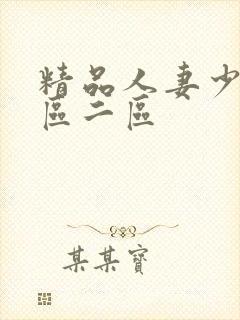 精品人妻少
區二區
某某寶